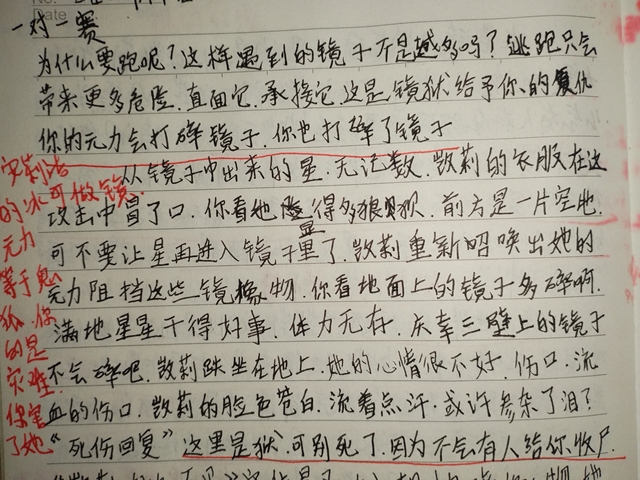 No.
Date
一对一赛
为什么要跑呢？这样遇到的镜子不是越多吗？逃跑只会
带来更多危险．直面它．承接它．这是镜狱给予你的复仇
你的元力会打碎镜子．你也打碎了镜子
从镜子中出来的星．无记数．凯莉的衣服在这
攻击中冒了口．你看她显得多狼狈．前方是一片空地．
可不要让星再进入镜子里了．凯莉重新昭唤出她的
元力阻挡这些镜像物．你看地面上的镜子多碎啊．
满地星星干得好事．体力无存．庆幸三壁上的镜子
不会碎吧．凯莉跌坐在地上．她的心情很不好．伤口．流
血的伤口．凯莉的脸色苍白．流着点汗．或许参杂了泪？
“死伤回复”这里是狱．可别死了．因为不会有人给你收尸
安莉洁
的冰可做镜．
元力
等于鬼
狐．你
的是
灾难
你害
了她